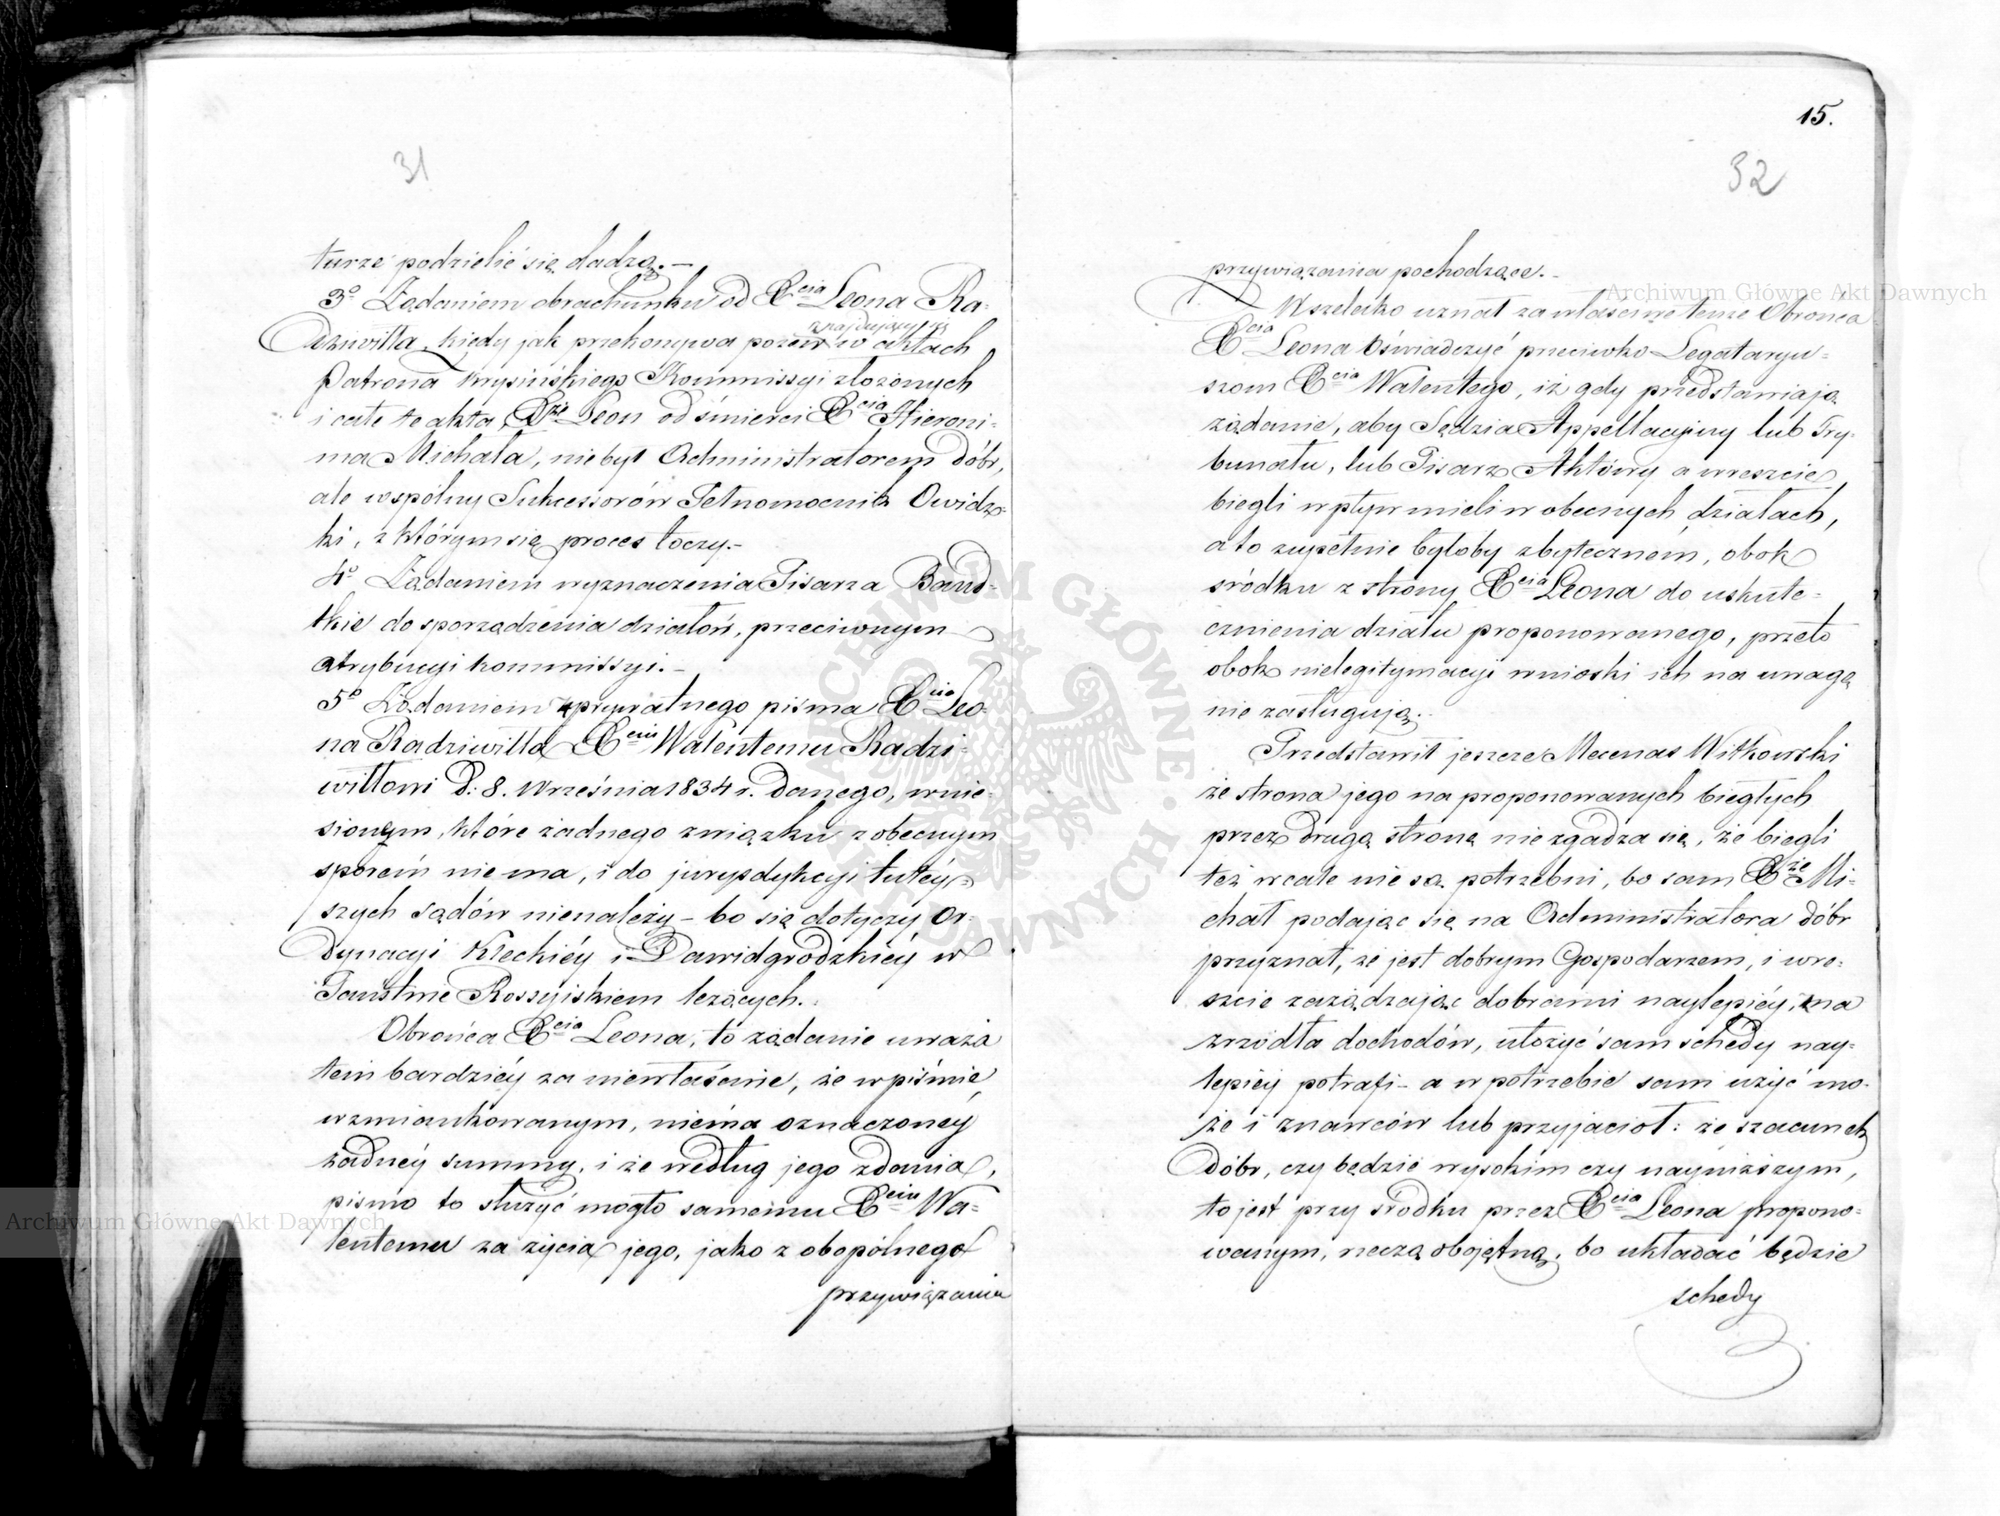 31
turze podzielić się dadzą.—
3o Żądaniem obrachunku od Xcia Leona Ra-
dziwiłła, kiedy jak przekonywa pozew znajdujący się w aktach
Patrona Krysińskiego Kommissyi złożonych
i całe te akta, Xże Leon od śmierci Xcia Hieroni-
ma Michała, nie był Administratorem dóbr,
ale wspólny Sukcessorów Pełnomocnik Owidz-
ki, z którym się proces toczy.—
4o Żądaniem wyznaczenia Pisarza Band-
tkie do sporządzenia działów, przeciwnym
atrybucyi kommissyi.—
5o Żądaniem z prywatnego pisma Xcia Leo-
na Radziwiłła Xciu Walentemu Radzi-
wiłłowi D: 8. Września 1834 r. danego, wnie-
sionym, które żadnego związku z obecnym
sporem nie ma, i do juryzdykcyi tutéy-
szych sądów nienależy – bo się dotyczy Or-
dynacyi Kleckiéy i Dawidgrodzkiéy w
Państwie Rossyiskiem leżących.
Obrońca Xcia Leona, to żądanie uważa
tem bardziéy za niewłaściwe, że w piśmie,
wzmiankowanym, niema oznaczoney
żadnéy summy, i że według jego zdania,
pismo to służyć mogło samemu Xciu Wa-
lentemu za życia jego, jako z obopólnego
przywiązania
15.
32
przywiązania pochodzące.
Wszelako uznał za właściwe tenże Obrońca
Xcia Leona oświadczyć przeciwko Legataryu-
szom Xcia Walentego, iż gdy przedstawiają
żądanie, aby Sędzia Appellacyiny lub Try-
bunału, lub Pisarz Aktowy a wreszcie
biegli wpływ mieli w obecnych działach,
a to zupełnie byłoby zbytecznem, obok
śródku z strony Xcia Leona do uskute-
cznienia działu proponowanego, przeto
obok nielegitymacyi wnioski ich na uwagę
nie zasługują.
Przedstawił jeszcze Mecenas Witkowski
że strona jego na proponowanych biegłych
przez drugą stronę nie zgadza się, że biegli
też wcale nie są potrzebni, bo sam Xże Mi-
chał podając się na Administratora dóbr
przyznał, że jest dobrym Gospodarzem, i wre-
szcie zarządzając dobrami naylepiéy, zna
źrzódła dochodów, ułożyć sam schedy nay-
lepiéy potrafi – a w potrzebie sam użyć mo-
że i znawców lub przyjaciół: że szacunek
dóbr, czy będzie wysokim czy nayniższym,
to jest przy środku przez Xcia Leona propono-
wanym, rzeczą obojętną, bo układać będzie
schedy
Archiwum Główne Akt Dawnych
Archiwum Główne Akt Dawnych
ARCHIWUM GŁÓWNE AKT DAWNYCH